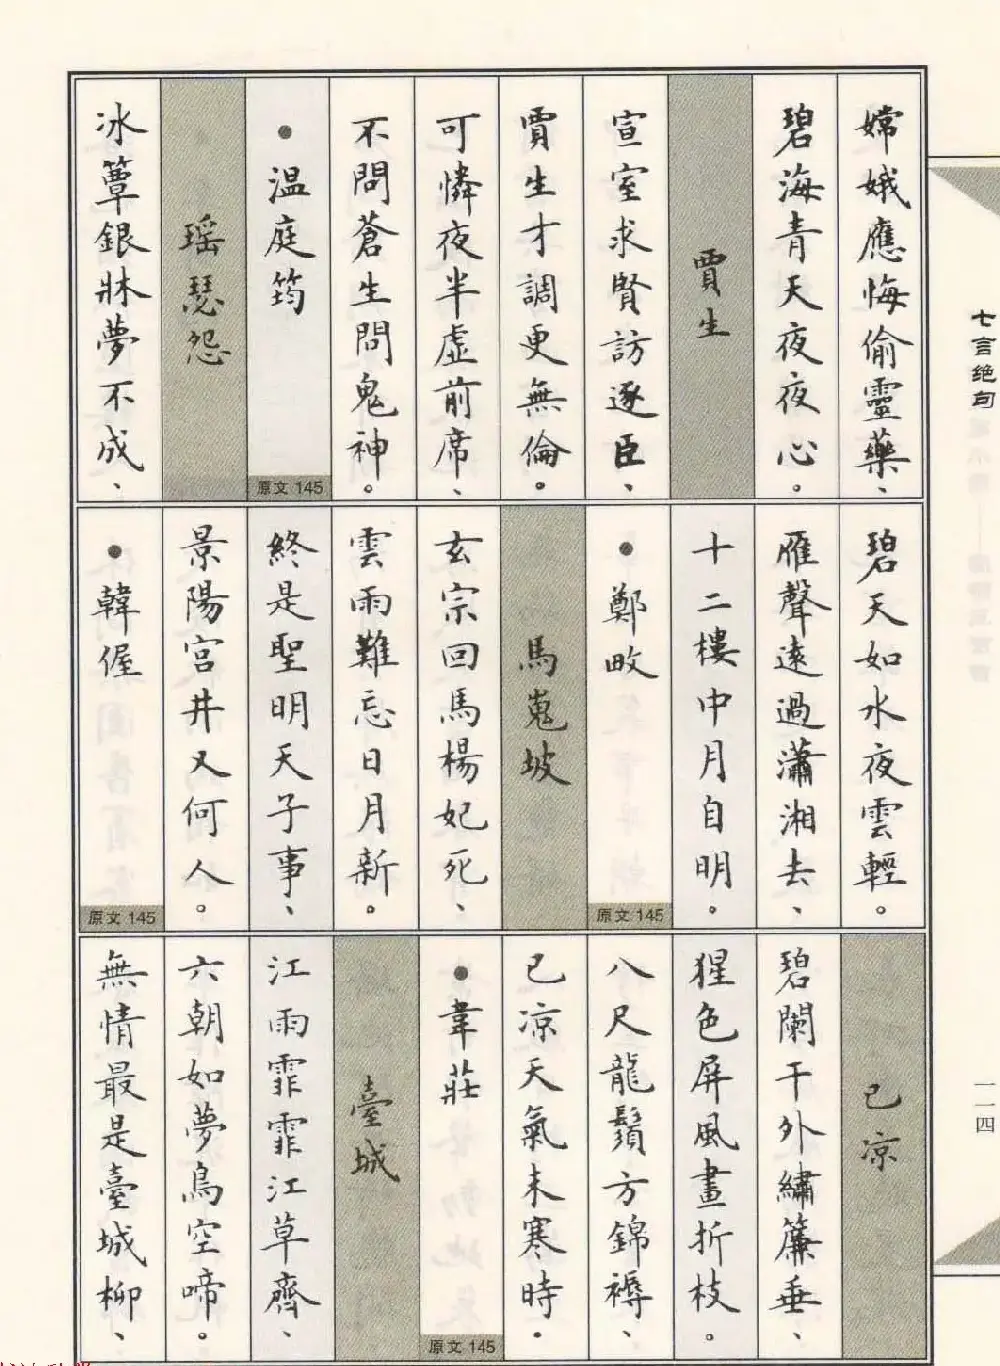 嫦娥應悔偷靈藥、
碧海青天夜夜心。
賈生
宣室求賢訪逐臣、
賈生才調更無倫。
可憐夜半虛前席、
不問蒼生問鬼神。
●温庭筠
原文 145
瑶瑟怨
冰簟銀牀夢不成、
碧天如水夜雲輕。
雁聲遠過瀟湘去、
十二樓中月自明。
●鄭畋
原文 145
馬嵬坡
玄宗回馬楊妃死、
雲雨難忘日月新。
終是聖明天子事、
景陽宫井又何人。
●韓偓
原文 145
已凉
碧闌干外繡簾垂、
猩色屏風畫折枝。
八尺龍鬚方錦褥、
已凉天氣未寒時。
●韋莊
原文 145
臺城
江雨霏霏江草齊、
六朝如夢鳥空啼。
無情最是臺城柳、
七言绝句
一一四